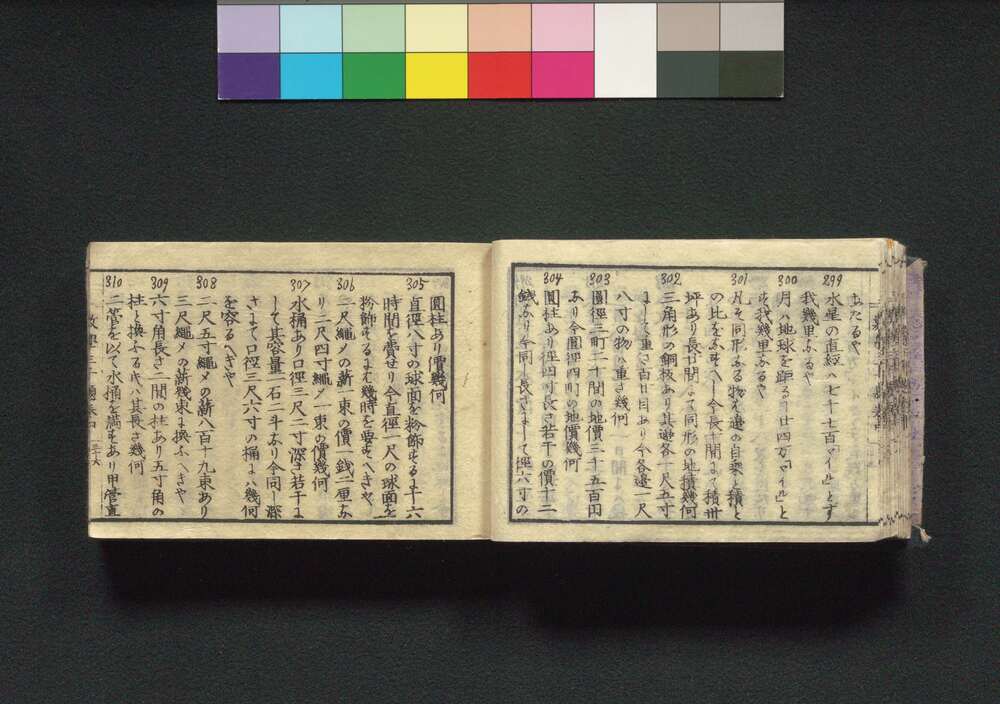 あたるや
299
水星の直經ハ七千七百「マイル」とす
我幾里なるや
300
月ハ地球を距る廿四万「マイル」と
す我幾里なるや
301
凡そ同形なる物ハ邊の自乗と積と
の比をなすべし今長十間まて積卅
坪あり長廿間まて同形の地積幾何
302
三角形の銅板あり其邊各一尺五寸
まして重さ百目あり今各邊一尺
八寸の物ハ重さ幾何
303
圓徑三町二十間の地價三千五百円
なり今圓徑四町の地價幾何
304
圓柱あり徑四寸長さ若干の價十二
錢なり今同し長さまして徑六寸の
圓柱あり價幾何
305
直徑八寸の球面を粉飾するよ十六
時間を費せり今直徑一尺の球面を
粉飾するよ幾時を要すべきや
306
二尺繩〆の薪一束の價一錢二厘な
り二尺四寸繩〆一束の價幾何
307
水桶あり口徑三尺二寸深さ若干ま
して其容量一石二斗なり今同し深
さまて口徑三尺六寸の桶まハ幾何
を容るべきや
308
二尺五寸繩〆の薪八百十九束あり
三尺繩〆の薪幾束よ換ふべきや
309
六寸角長さ二間の柱あり五寸角の
柱と換ふる代ハ其長さ幾何
310
二管を以て水桶を満すあり甲管直